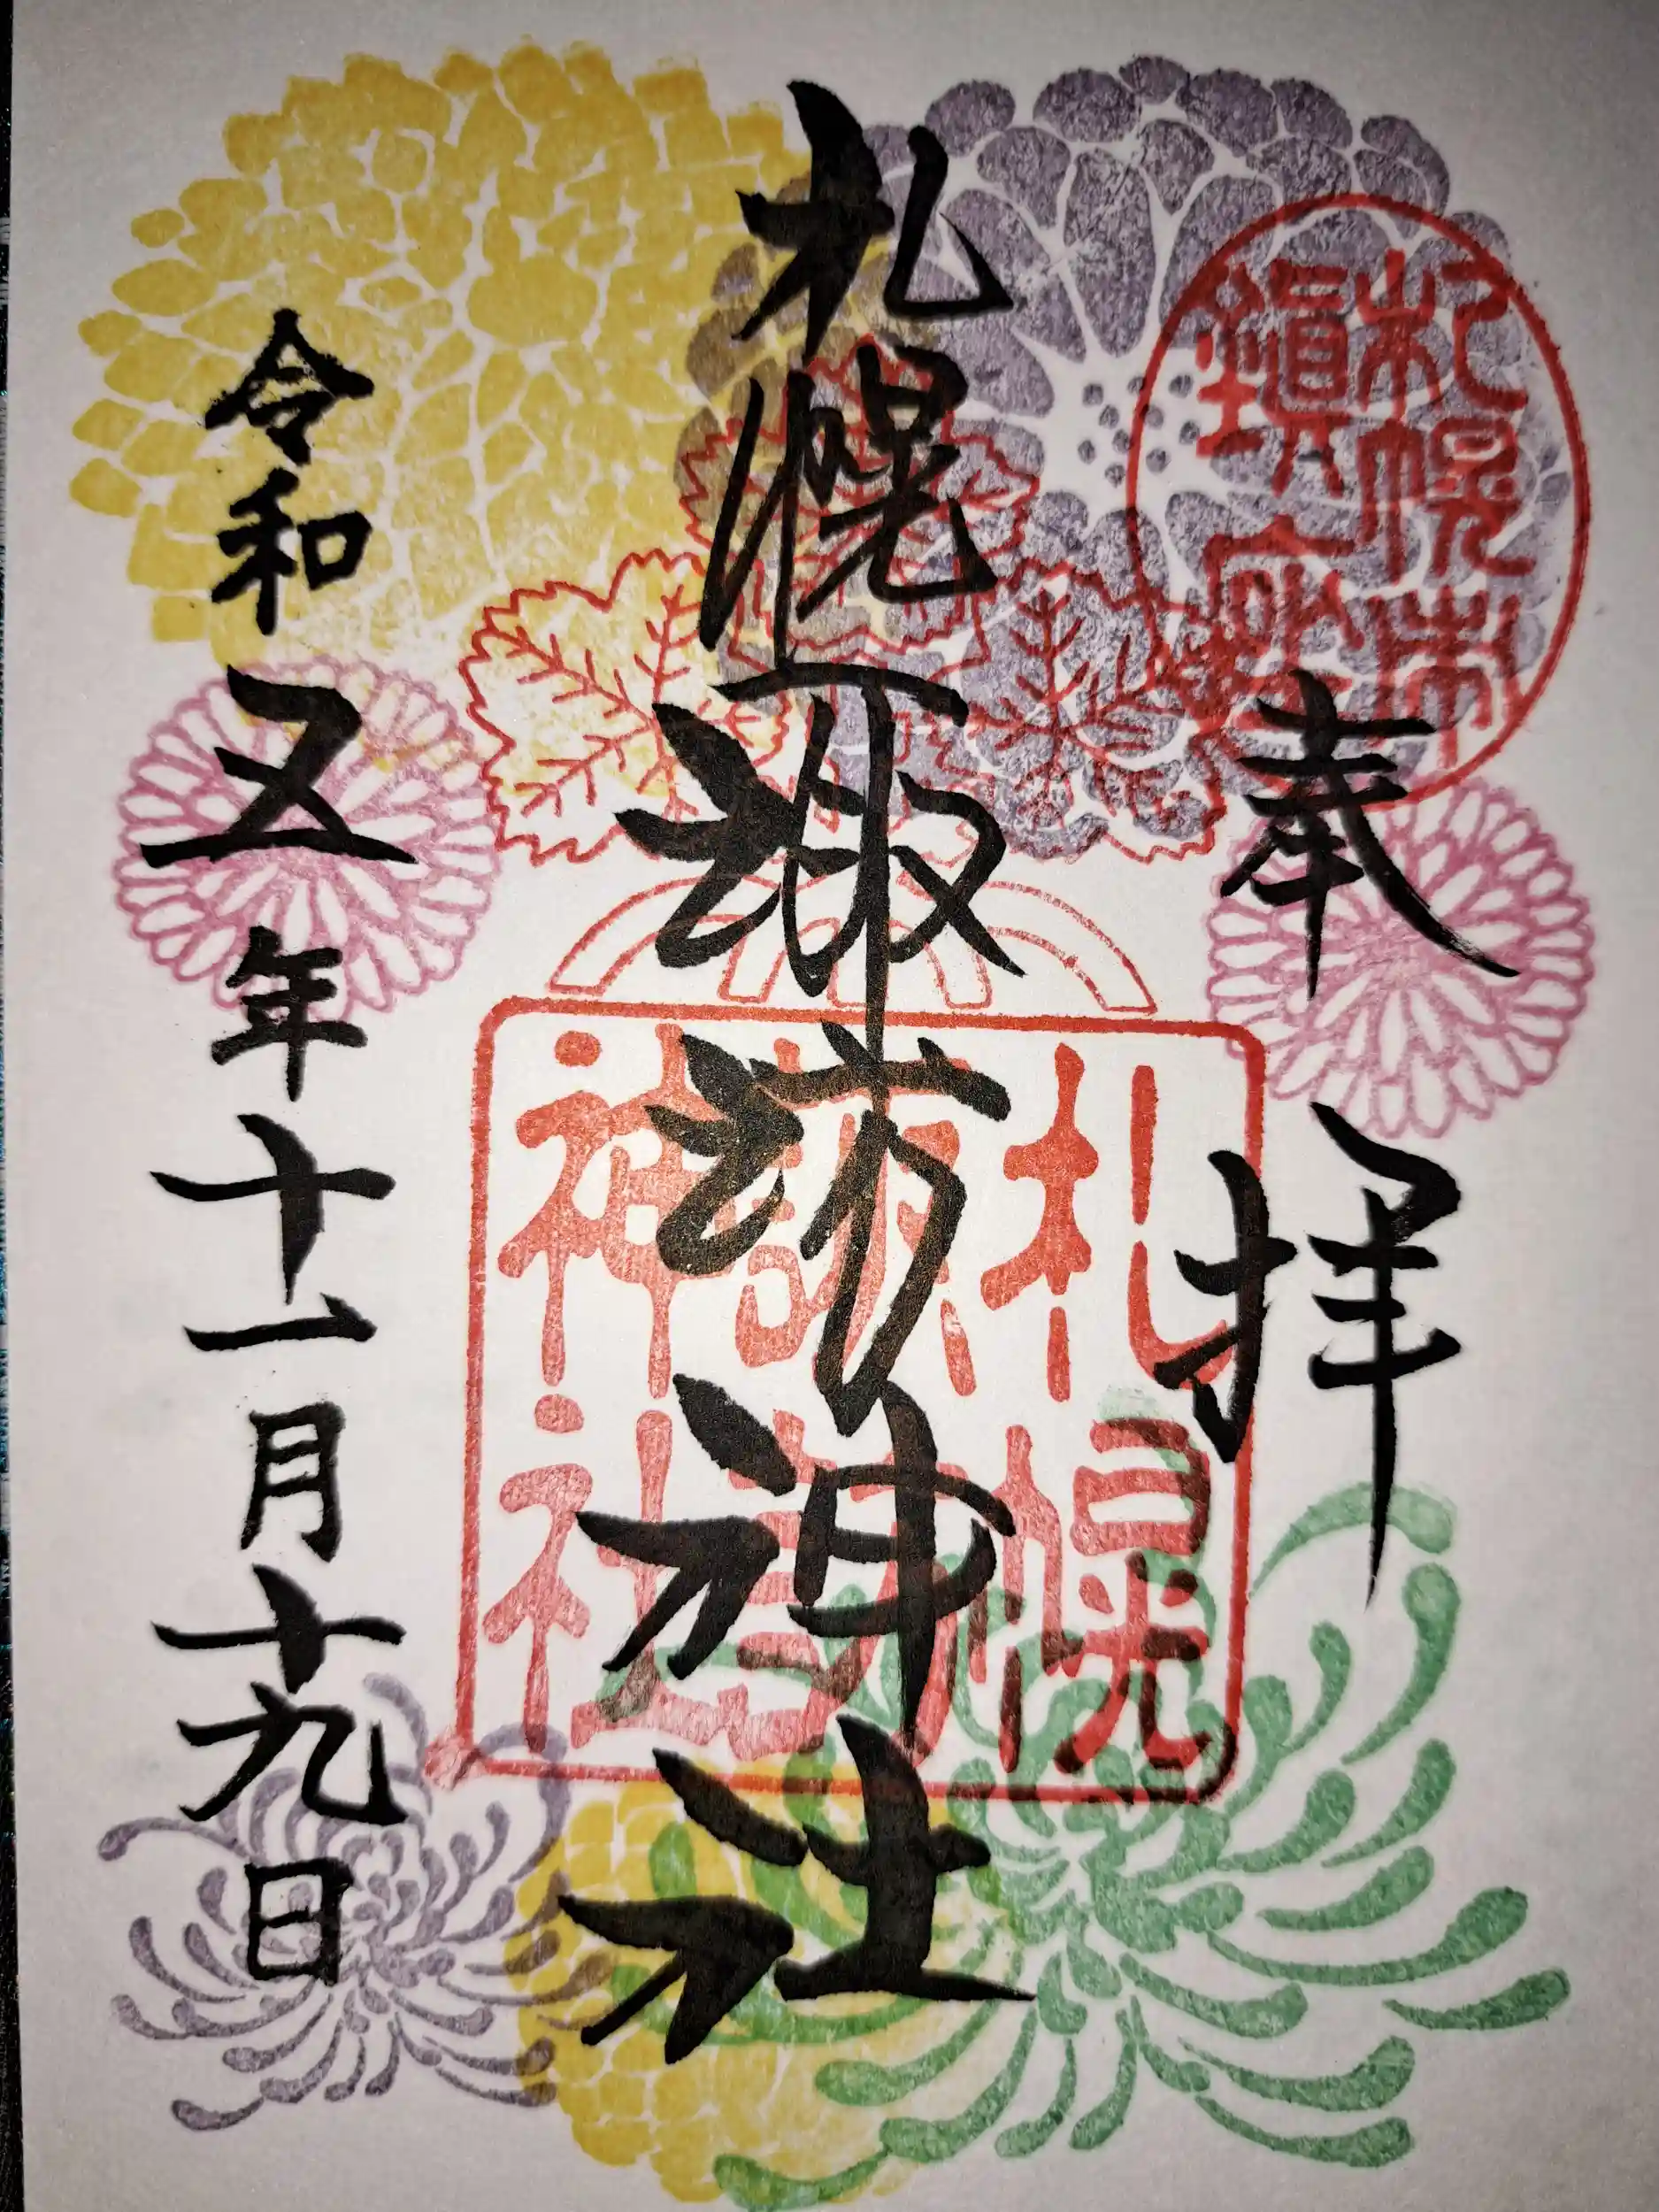 札幌市
鎮座
奉拝
札幌諏訪神社
札幌
諏訪
神社
令和五年十一月十九日